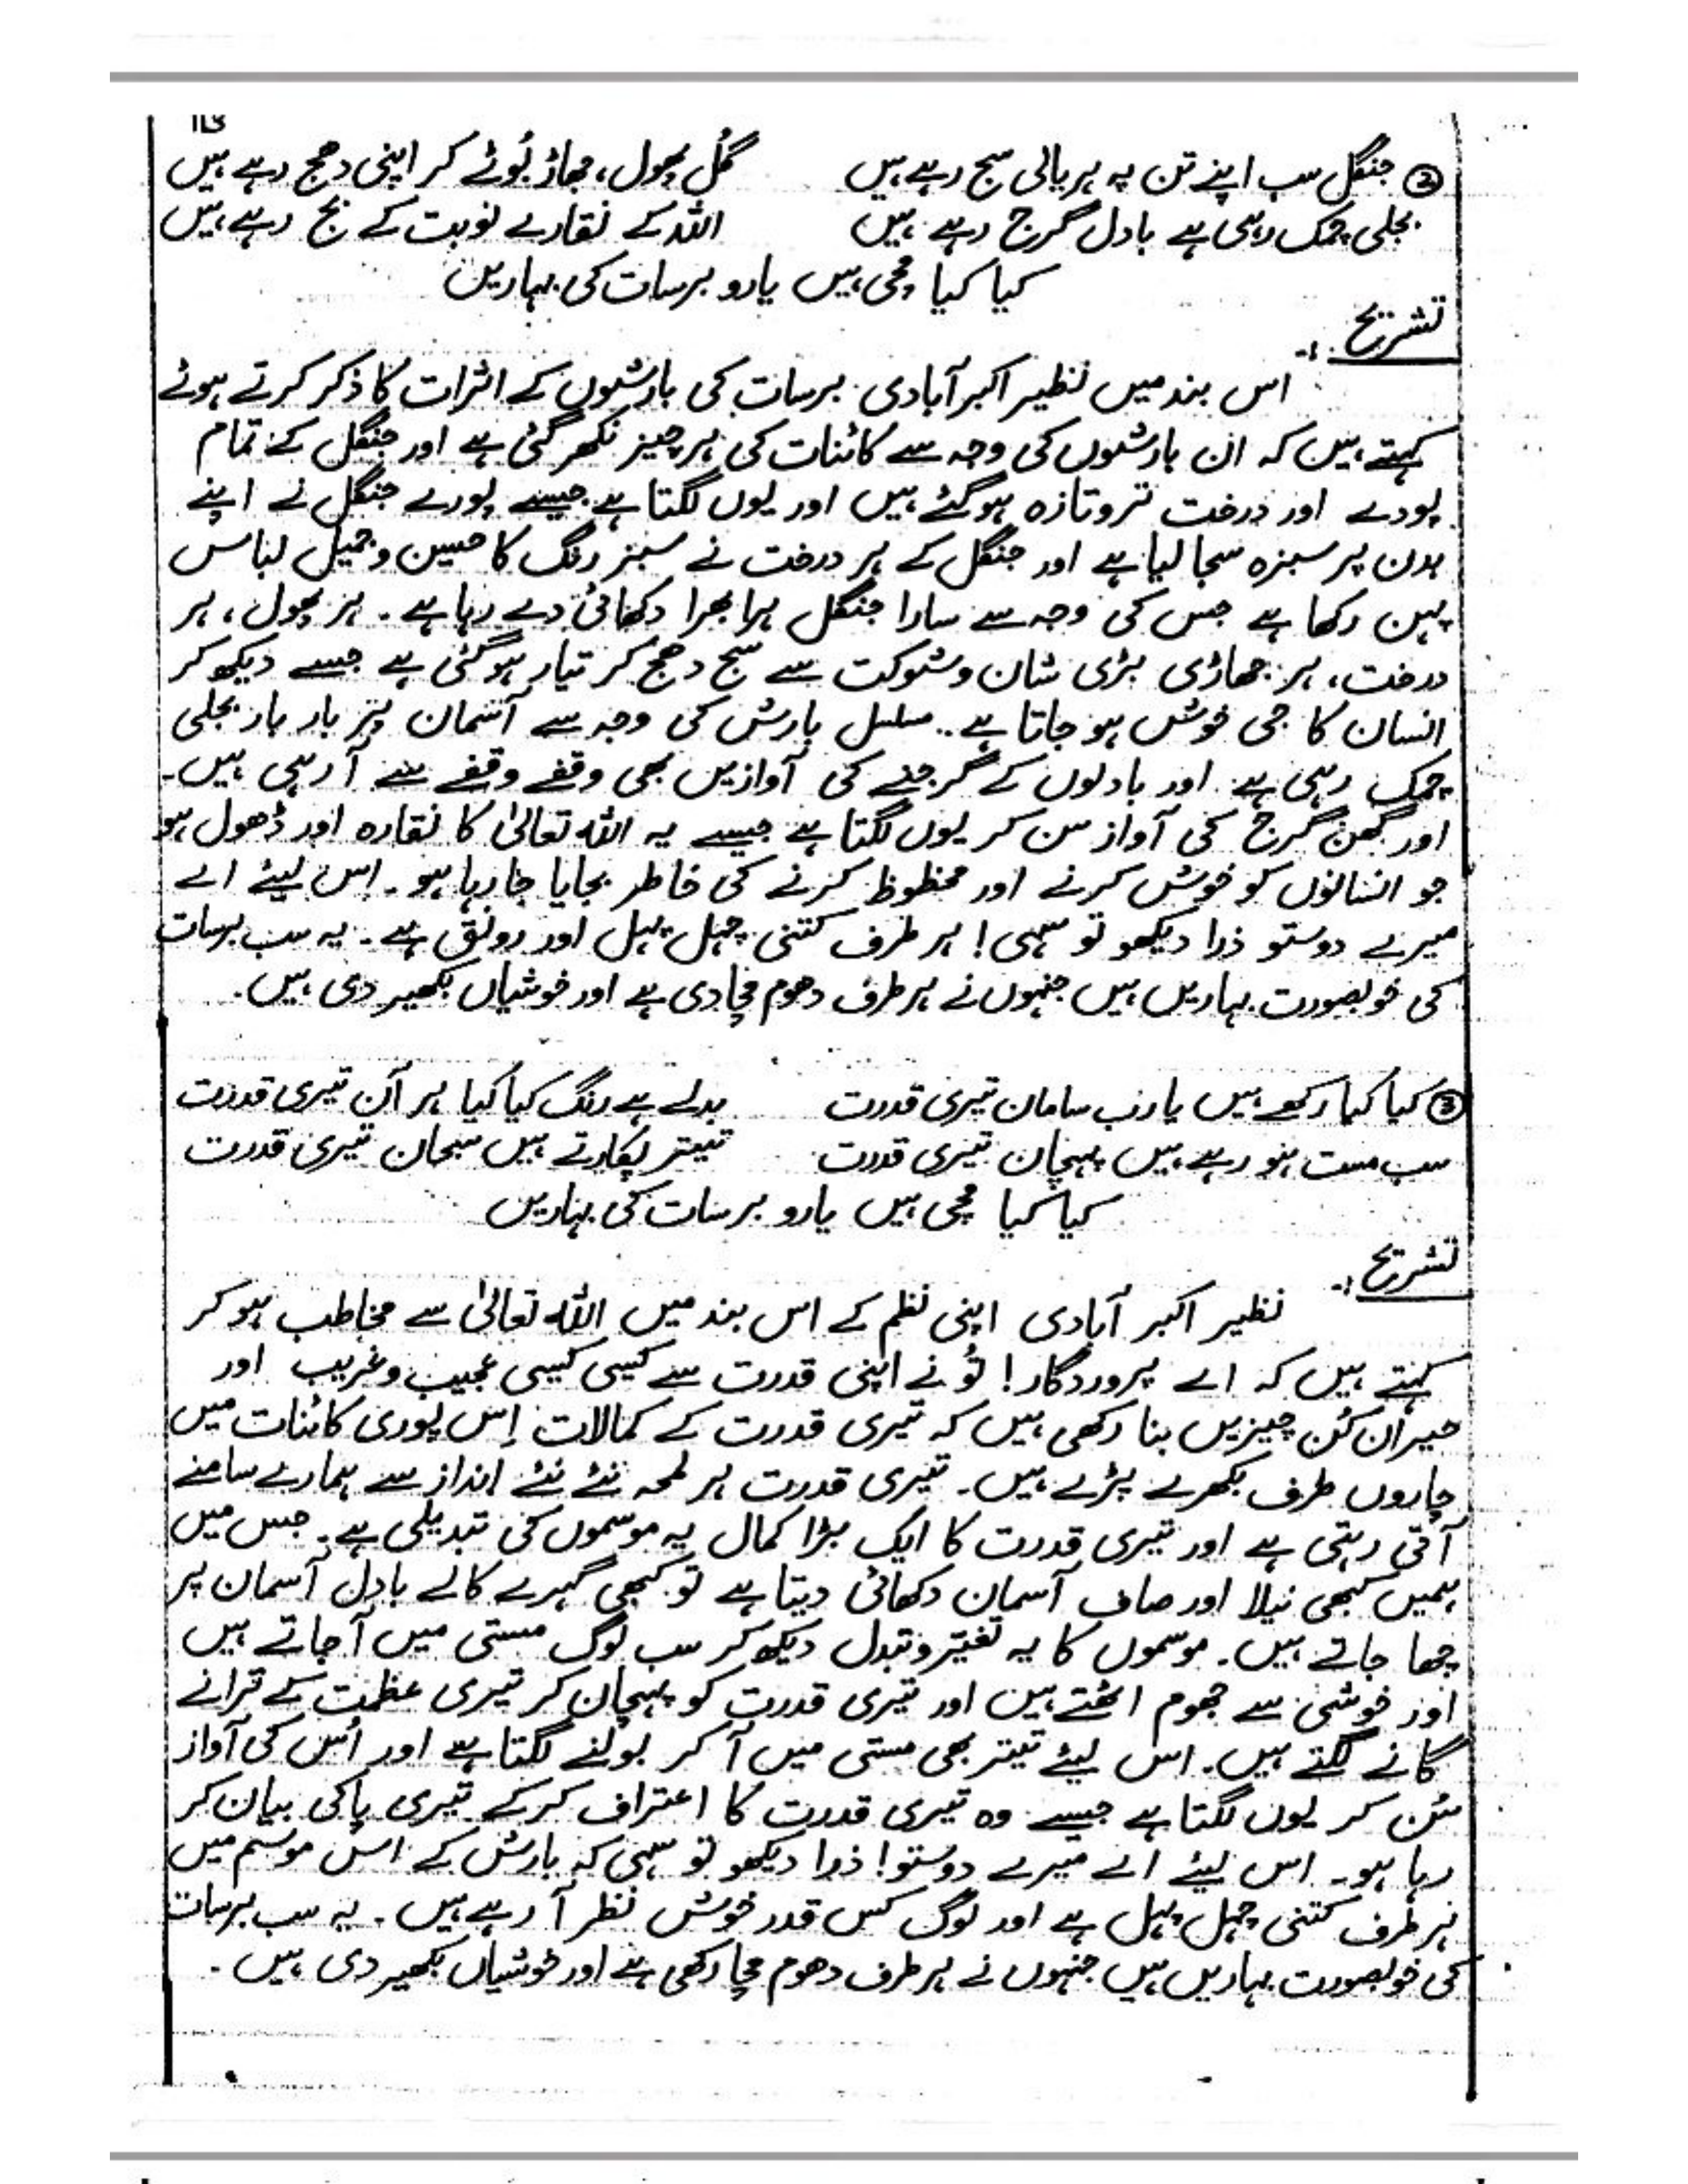 ② جنگل سب اپنے تن پہ ہریالی سج رہے ہیں گُل پھول، جھاڑ بُوٹے کر اپنی دھج رہے ہیں
بجلی چمک رہی ہے بادل گرج رہے ہیں اللہ کے نقارے نوبت کے بج رہے ہیں
کیا کیا مچی ہیں یارو برسات کی بہاریں
تشریح :۔
اس بند میں نظیر اکبر آبادی برسات کی بارشوں کے اثرات کا ذکر کرتے ہوئے
کہتے ہیں کہ ان بارشوں کی وجہ سے کائنات کی ہر چیز نکھر گئی ہے اور جنگل کے تمام
پودے اور درخت تروتازہ ہوگئے ہیں اور یوں لگتا ہے جیسے پورے جنگل نے اپنے
بدن پر سبزہ سجا لیا ہے اور جنگل کے ہر درخت نے سبز رنگ کا حسین و جمیل لباس
پہن رکھا ہے جس کی وجہ سے سارا جنگل ہرا بھرا دکھائی دے رہا ہے۔ ہر پھول، ہر
درخت، ہر جھاڑی بڑی شان و شوکت سے سج دھج کر تیار ہوگئی ہے جسے دیکھ کر
انسان کا جی خوش ہو جاتا ہے۔ مسلسل بارش کی وجہ سے آسمان پر بار بار بجلی
چمک رہی ہے اور بادلوں کے گرجنے کی آوازیں بھی وقفے وقفے سے آ رہی ہیں۔
اور گھن گرج کی آواز سن کر یوں لگتا ہے جیسے یہ اللہ تعالیٰ کا نقارہ اور ڈھول ہو
جو انسانوں کو خوش کرنے اور محظوظ کرنے کی خاطر بجایا جا رہا ہو۔ اس لیئے اے
میرے دوستو ذرا دیکھو تو سہی! ہر طرف کتنی چہل پہل اور رونق ہے۔ یہ سب برسات
کی خوبصورت بہاریں ہیں جنہوں نے ہر طرف دھوم مچا دی ہے اور خوشیاں بکھیر دی ہیں۔
③ کیا کیا رکھے ہیں یا رب سامان تیری قدرت بدلے ہے رنگ کیا کیا ہر آن تیری قدرت
سب مست ہو رہے ہیں پہچان تیری قدرت تیتر پکارتے ہیں سبحان تیری قدرت
کیا کیا مچی ہیں یارو برسات کی بہاریں
تشریح :۔
نظیر اکبر آبادی اپنی نظم کے اس بند میں اللہ تعالیٰ سے مخاطب ہو کر
کہتے ہیں کہ اے پروردگار! تُو نے اپنی قدرت سے کیسی کیسی عجیب و غریب اور
حیران کُن چیزیں بنا رکھی ہیں کہ تیری قدرت کے کمالات اِس پوری کائنات میں
چاروں طرف بکھرے پڑے ہیں۔ تیری قدرت ہر لمحہ نئے نئے انداز سے ہمارے سامنے
آتی رہتی ہے اور تیری قدرت کا ایک بڑا کمال یہ موسموں کی تبدیلی ہے۔ جس میں
ہمیں کبھی نیلا اور صاف آسمان دکھائی دیتا ہے تو کبھی گہرے کالے بادل آسمان پر
چھا جاتے ہیں۔ موسموں کا یہ تغیّر و تبدل دیکھ کر سب لوگ مستی میں آجاتے ہیں
اور خوشی سے جھوم اٹھتے ہیں اور تیری قدرت کو پہچان کر تیری عظمت کے ترانے
گانے لگتے ہیں۔ اس لیئے تیتر بھی مستی میں آ کر بولنے لگتا ہے اور اُس کی آواز
سُن کر یوں لگتا ہے جیسے وہ تیری قدرت کا اعتراف کرکے تیری پاکی بیان کر
رہا ہو۔ اس لیئے اے میرے دوستو! ذرا دیکھو تو سہی کہ بارش کے اس موسم میں
ہر طرف کتنی چہل پہل ہے اور لوگ کس قدر خوش نظر آ رہے ہیں۔ یہ سب برسات
کی خوبصورت بہاریں ہیں جنہوں نے ہر طرف دھوم مچا رکھی ہے اور خوشیاں بکھیر دی ہیں۔